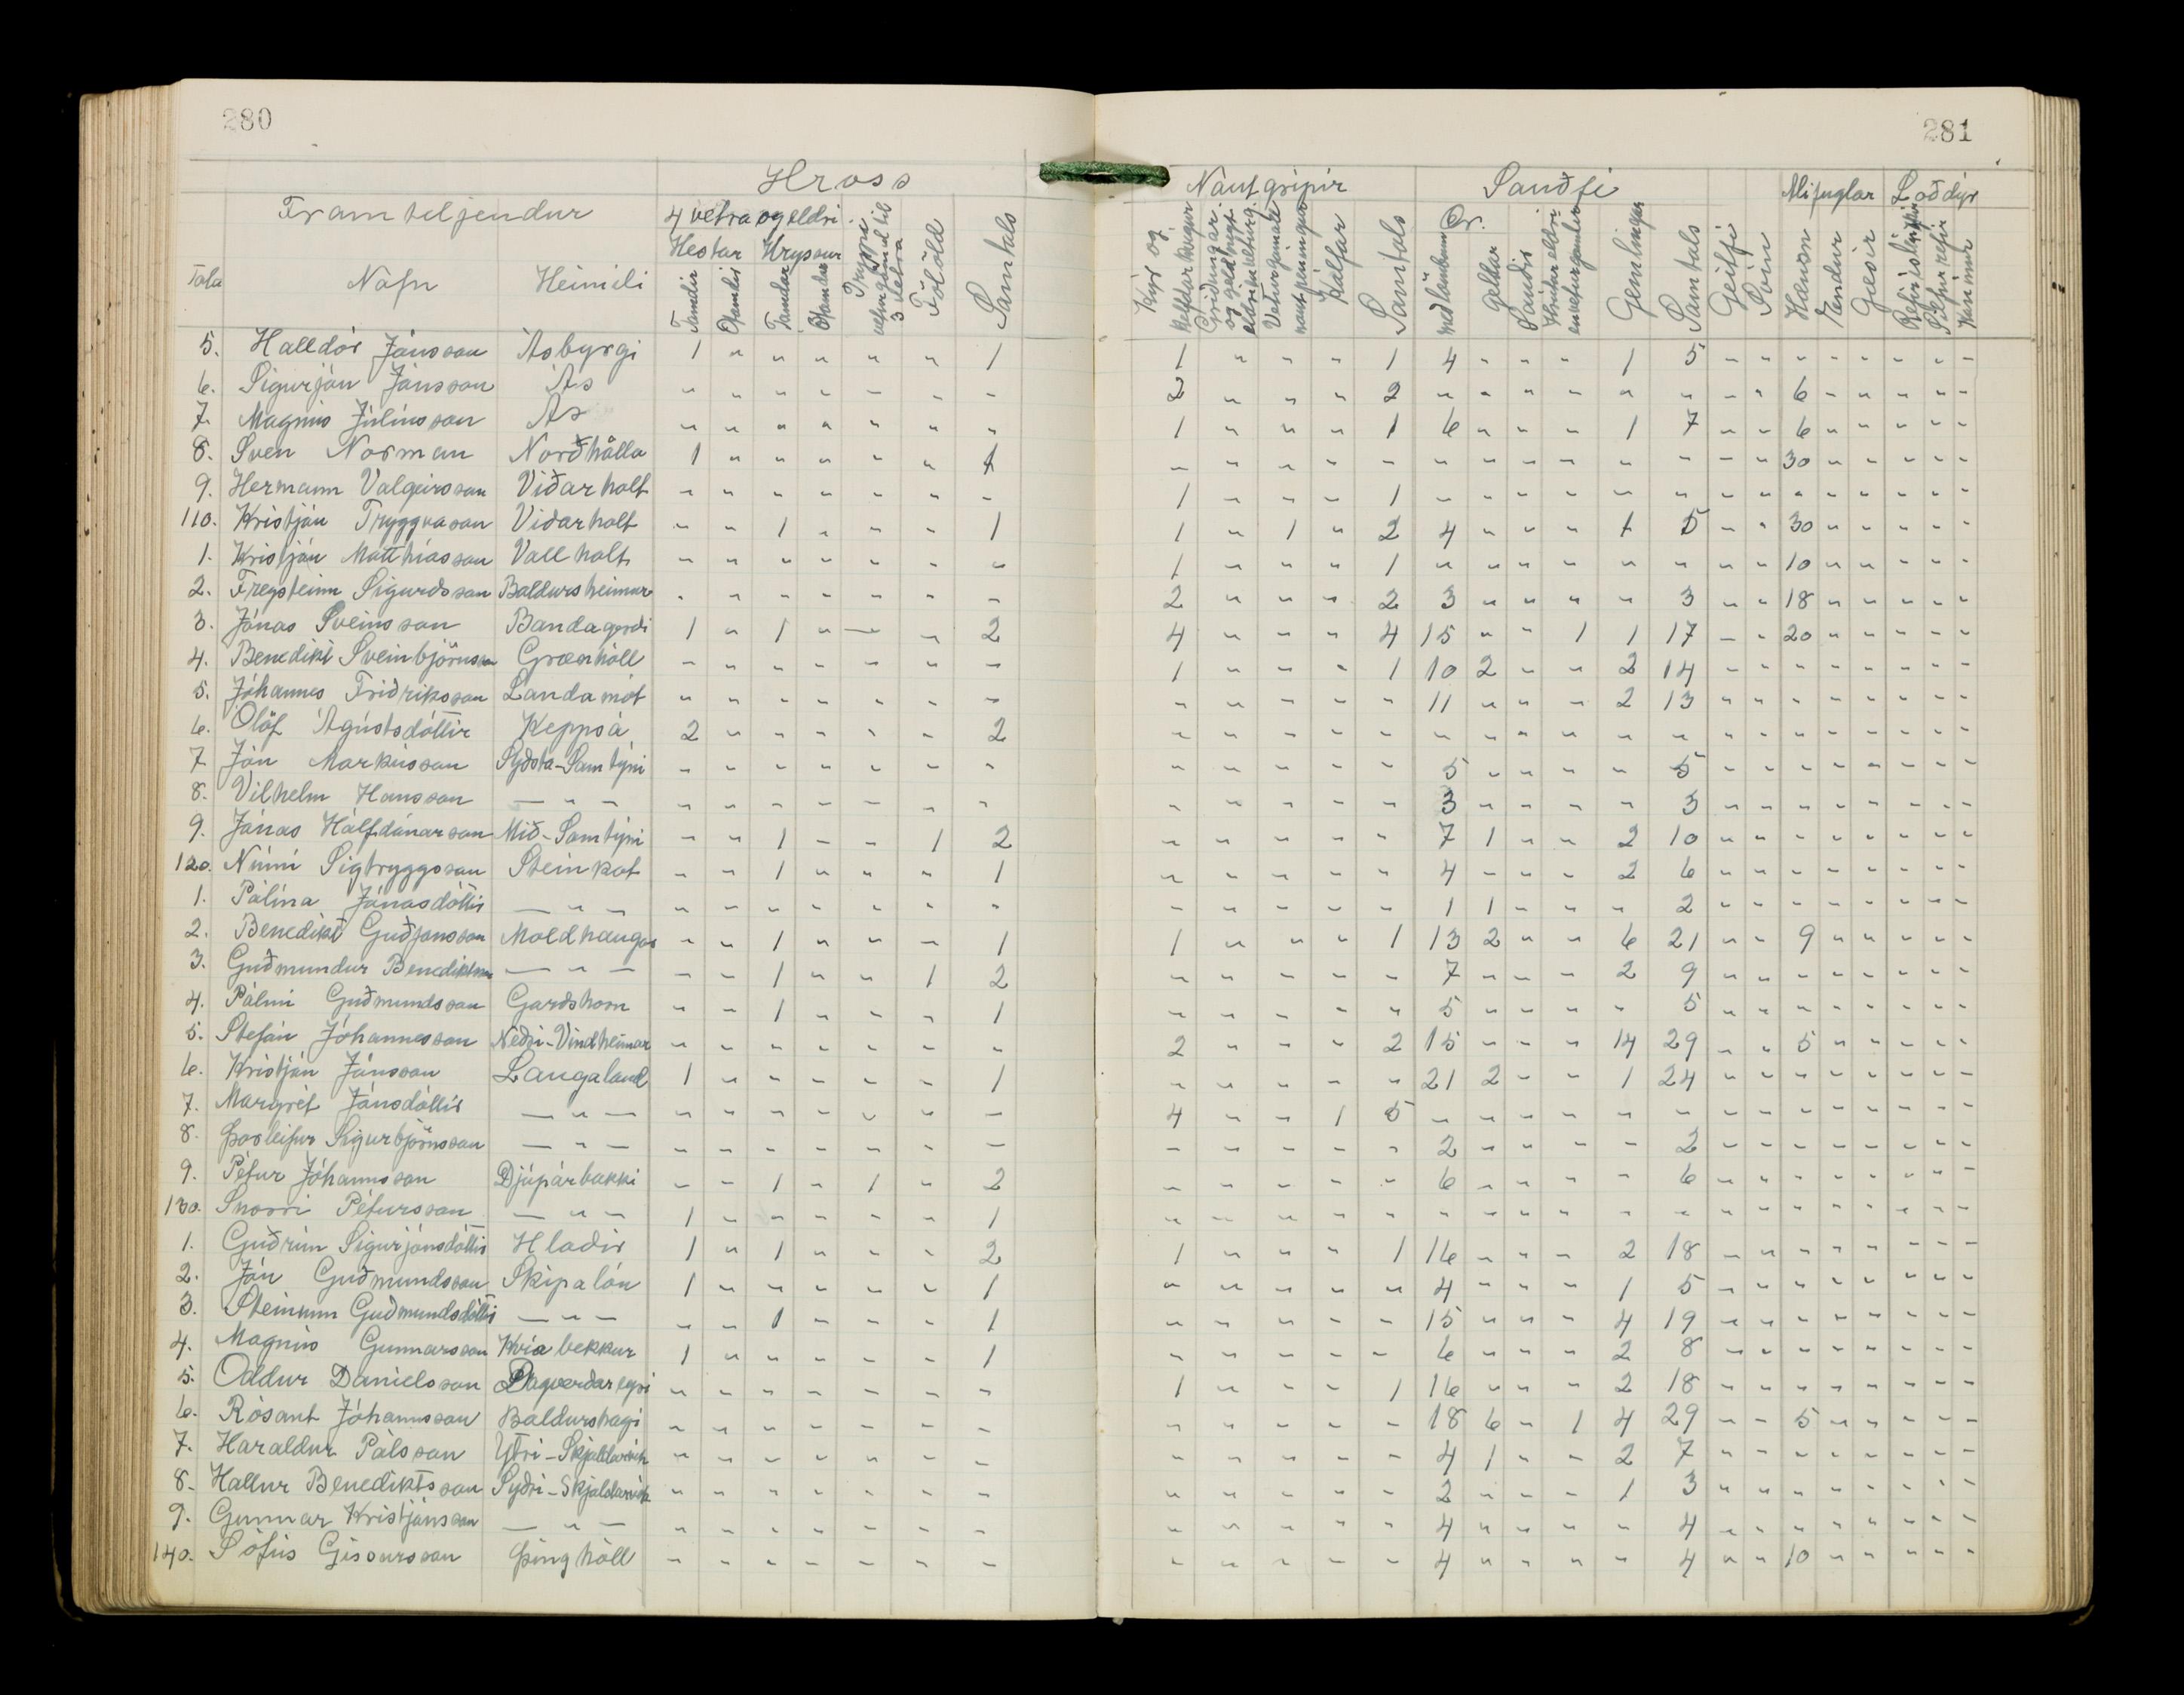 280
281
Hross
Nautgripir
Sauðfé
Alifuglar
Loðdýr
Framteljendur
4 vetra og eldri
Hestar
Hryssur
Tala
Nafn
Heimili
Tamdir
Ótamdir
Tamdar
Ótamdar
Tryppi
3 vetra
Folöld
Samtals
Kýr og kelfdar kvígur
Kálfar
Samtals
Ær
með lömbum
geldar
Sauðir
Gemlingar
Samtals
Geitfé
Svín
Hænsn
Endur
Gæsir
Silfurrefir
Kanínur
5. Halldór Jónsson Ásbyrgi 1 " " " " " 1 1 " " " 1 4 " " " 1 5 " " " " " " " "
6. Sigurjón Jónsson Ás " " " " " " " 2 " " " 2 " " " " " " " " 6 " " " " "
7. Magnús Júlíusson Ás " " " " " " " 1 " " " 1 6 " " " 1 7 " " 6 " " " " "
8. Sven Norman Norðhälla 1 " " " " " 1 " " " " " " " " " " " " " 30 " " " " "
9. Hermann Valgeirsson Viðarholt " " " " " " " 1 " " " 1 " " " " " " " " " " " " " "
110. Kristján Tryggvason Viðarholt " " 1 " " " 1 1 " 1 " 2 4 " " " 1 5 " " 30 " " " " "
1. Kristján Matthíasson Vallholt " " " " " " " 1 " " " 1 " " " " " " " " 10 " " " " "
2. Freysteinn Sigurdsson Baldursheimur " " " " " " " 2 " " " 2 3 " " " " 3 " " 18 " " " " "
3. Jónas Sveinsson Bandagerdi 1 " 1 " " " 2 4 " " " 4 15 " " 1 1 17 " " 20 " " " " "
4. Benedikt Sveinbjörnsson Grænhóll " " " " " " " 1 " " " 1 10 2 " " 2 14 " " " " " " " "
5. Jóhannes Friðriksson Landamót " " " " " " " " " " " " 11 " " " 2 13 " " " " " " " "
6. Ólöf Ágústsdóttir Keppsá 2 " " " " " 2 " " " " " " " " " " " " " " " " " " "
7. Jón Markússon Sydsta-Samtýni " " " " " " " " " " " " 5 " " " " 5 " " " " " " " "
8. Vilhelm Hansson — " — " " " " " " " " " " " " 3 " " " " 3 " " " " " " " "
9. Jónas Hálfdánarson Mið-Samtýni " " 1 " " 1 2 " " " " " 7 1 " " 2 10 " " " " " " " "
120. Númi Sigtryggsson Steinkot " " 1 " " " 1 " " " " " 4 " " " 2 6 " " " " " " " "
1. Pálína Jónasdóttir — " — " " " " " " " " " " " " 1 1 " " " 2 " " " " " " " "
2. Benedikt Guðjónsson Moldhaugar " " 1 " " " 1 1 " " " 1 13 2 " " 6 21 " " 9 " " " " "
3. Guðmundur Benediktsson — " — " " 1 " " 1 2 " " " " " 7 " " " 2 9 " " " " " " " "
4. Pálmi Guðmundsson Gardshorn " " 1 " " " 1 " " " " " 5 " " " " 5 " " " " " " " "
5. Stefán Jóhannesson Neðri-Vindheimar " " " " " " " 2 " " " 2 15 " " " 14 29 " " 5 " " " " "
6. Kristján Jónsson Laugaland 1 " " " " " 1 " " " " " 21 2 " " 1 24 " " " " " " " "
7. Margrét Jónsdóttir — " — " " " " " " " 4 " " 1 5 " " " " " " " " " " " " " "
8. Þorleifur Sigurbjörnsson — " — " " " " " " " " " " " " 2 " " " " 2 " " " " " " " "
9. Pétur Jóhannsson Djúpárbakki " " 1 " 1 " 2 " " " " " 6 " " " " 6 " " " " " " " "
130. Snorri Pétursson — " — 1 " " " " " 1 " " " " " " " " " " " " " " " " " " "
1. Guðrún Sigurjónsdóttir Hladir 1 " 1 " " " 2 1 " " " 1 16 " " " 2 18 " " " " " " " "
2. Jón Guðmundsson Skipalón 1 " " " " " 1 " " " " " 4 " " " 1 5 " " " " " " " "
3. Steinunn Guðmundsdóttir — " — " " 1 " " " 1 " " " " " 15 " " " 4 19 " " " " " " " "
4. Magnús Gunnarsson Kvíabekkur 1 " " " " " 1 " " " " " 6 " " " 2 8 " " " " " " " "
5. Oddur Daníelsson Dagverdareyri " " " " " " " 1 " " " 1 16 " " " 2 18 " " " " " " " "
6. Rósant Jóhannsson Baldurshagi " " " " " " " " " " " " 18 6 " 1 4 29 " " 5 " " " " "
7. Haraldur Pálsson Ytri-Skjaldarvík " " " " " " " " " " " " 4 1 " " 2 7 " " " " " " " "
8. Hallur Benediktsson Syðri-Skjaldarvík " " " " " " " " " " " " 2 " " " 1 3 " " " " " " " "
9. Gunnar Kristjánsson — " — " " " " " " " " " " " " 4 " " " " 4 " " " " " " " "
140. Sófus Gissursson Þinghóll " " " " " " " " " " " " 4 " " " " 4 " " 10 " " " " "